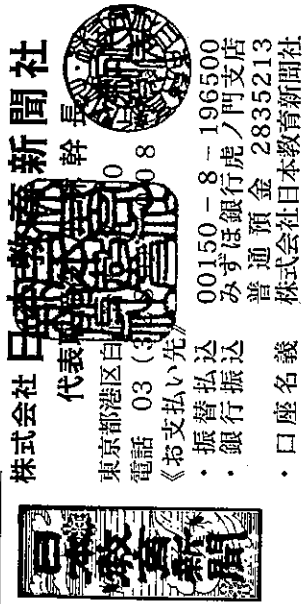 日本教育新聞
株式会社 日本教育新聞社
代表
幹 長
東京都港区白 0
電話 03 (3 08
《お支払い先》
・振替払込 00150-8-196500
・銀行振込 みずほ銀行虎ノ門支店
普通預金 2835213
・口座名義 株式会社日本教育新聞社